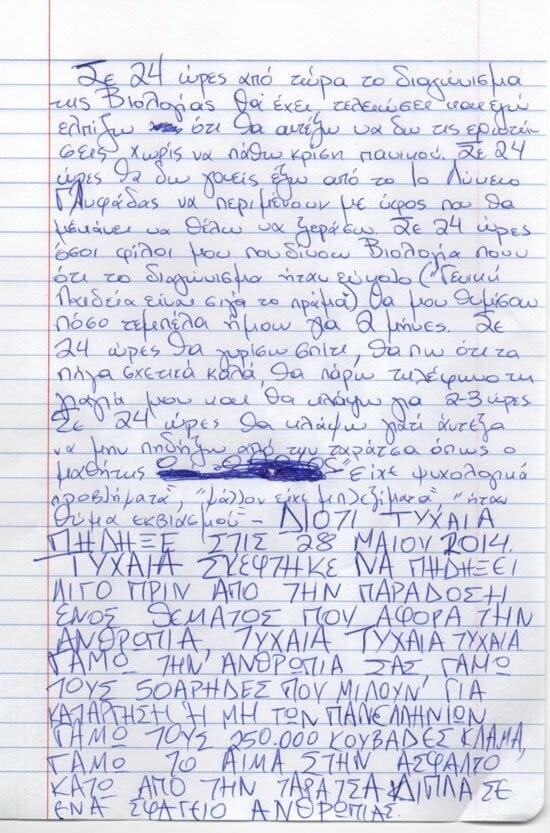 Σε 24 ώρες από τώρα το διαγώνισμα
της Βιολογίας θα έχει τελειώσει και εγώ
ελπίζω ότι θα αντέξω να δω τις ερωτή-
σεις χωρίς να πάθω κρίση πανικού. Σε 24
ώρες θα δω γονείς έξω από το 1ο Λύκειο
Γλυφάδας να περιμένουν με ύφος που θα
με κάνει να θέλω να ξεράσω. Σε 24 ώρες
όσοι φίλοι μου που δίνουν Βιολογία πουν
ότι το διαγώνισμα ήταν εύκολο ("Γενική
Παιδεία είναι σιγά το πράμα) θα μου θυμίσουν
πόσο τεμπέλα ήμουν για 2 μήνες. Σε
24 ώρες θα γυρίσω σπίτι, θα πω ότι τα
πήγα σχετικά καλά, θα πάρω τηλέφωνο τη
γιαγιά μου και θα κλάψω για 2-3 ώρες
Σε 24 ώρες θα κλάψω γιατί άντεξα
να μην πηδήξω από την ταράτσα όπως ο
μαθητής "είχε ψυχολογικά
προβλήματα", "μάλλον είχε μπλεξίματα", "ήταν
θύμα εκβιασμού" - ΔΙΟΤΙ ΤΥΧΑΙΑ
ΠΗΔΗΞΕ ΣΤΙΣ 28 ΜΑΙΟΥ 2014.
ΤΥΧΑΙΑ ΣΚΕΦΤΗΚΕ ΝΑ ΠΗΔΗΞΕΙ
ΛΙΓΟ ΠΡΙΝ ΑΠΟ ΤΗΝ ΠΑΡΑΔΟΣΗ
ΕΝΟΣ ΘΕΜΑΤΟΣ ΠΟΥ ΑΦΟΡΑ ΤΗΝ
ΑΝΘΡΩΠΙΑ, ΤΥΧΑΙΑ ΤΥΧΑΙΑ ΤΥΧΑΙΑ
ΓΑΜΩ ΤΗΝ ΑΝΘΡΩΠΙΑ ΣΑΣ ΓΑΜΩ
ΤΟΥΣ 50ΑΡΗΔΕΣ ΠΟΥ ΜΙΛΟΥΝ ΓΙΑ
ΚΑΤΑΡΓΗΣΗ Ή ΜΗ ΤΩΝ ΠΑΝΕΛΛΗΝΙΩΝ
ΓΑΜΩ ΤΟΥΣ 250.000 ΚΟΥΒΑΔΕΣ ΚΛΑΜΑ,
ΓΑΜΩ ΤΟ ΑΙΜΑ ΣΤΗΝ ΑΣΦΑΛΤΟ
ΚΑΤΩ ΑΠΟ ΤΗΝ ΤΑΡΑΤΣΑ ΔΙΠΛΑ ΣΕ
ΕΝΑ ΣΦΑΓΕΙΟ ΑΝΘΡΩΠΙΑΣ.